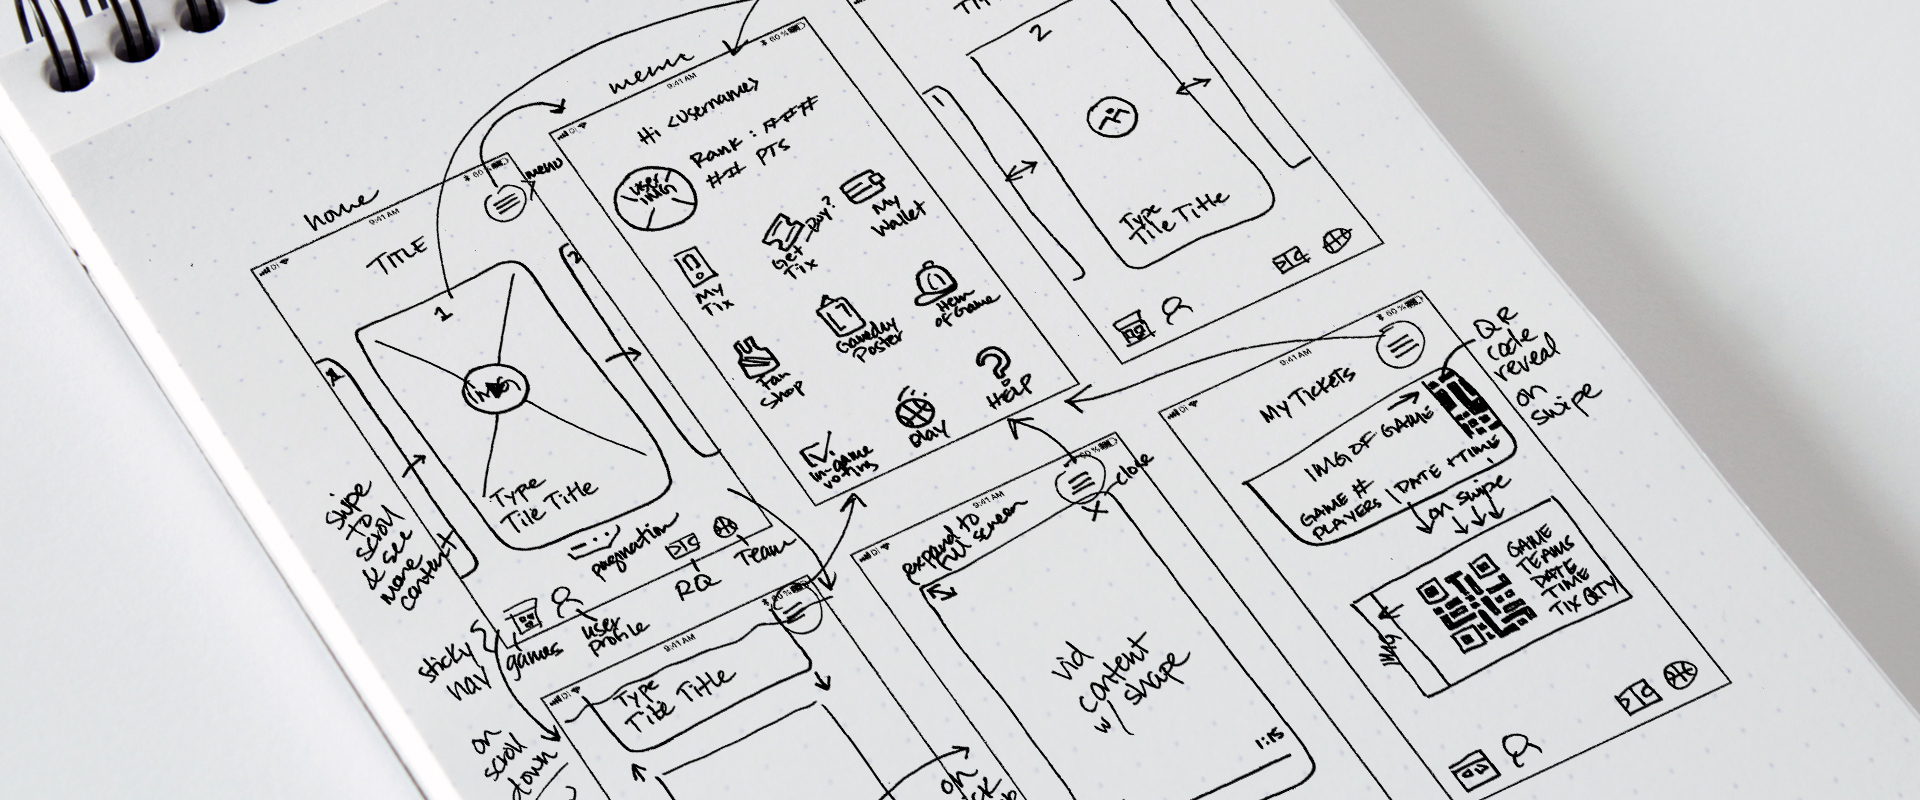 home
9:41 AM
60 %
menu
TITLE
1
2
IMG
Type
Tile Title
swipe
to
scroll
& see
more
content
pagination
games
user
profile
RQ
Team
sticky
nav
on
scroll
down
menu
9:41 AM
60 %
Hi <username>
user
IMG
Rank : ###
## PTS
My
Tix
Get
Tix
Buy?
My
Wallet
Fan
Shop
Gameday
Poster
Item
of Game
in-game
voting
play
HELP
2
1
Type
Tile Title
9:41 AM
Type
Tile Title
9:41 AM
60 %
close
X
expand to
full screen
vid
content
w/ shape
1:15
on
9:41 AM
60 %
My Tickets
QR
code
reveal
on
swipe
IMG OF GAME
GAME #
PLAYERS | DATE + TIME
on swipe
IMG
GAME
TEAMS
DATE
TIME
TIX QTY